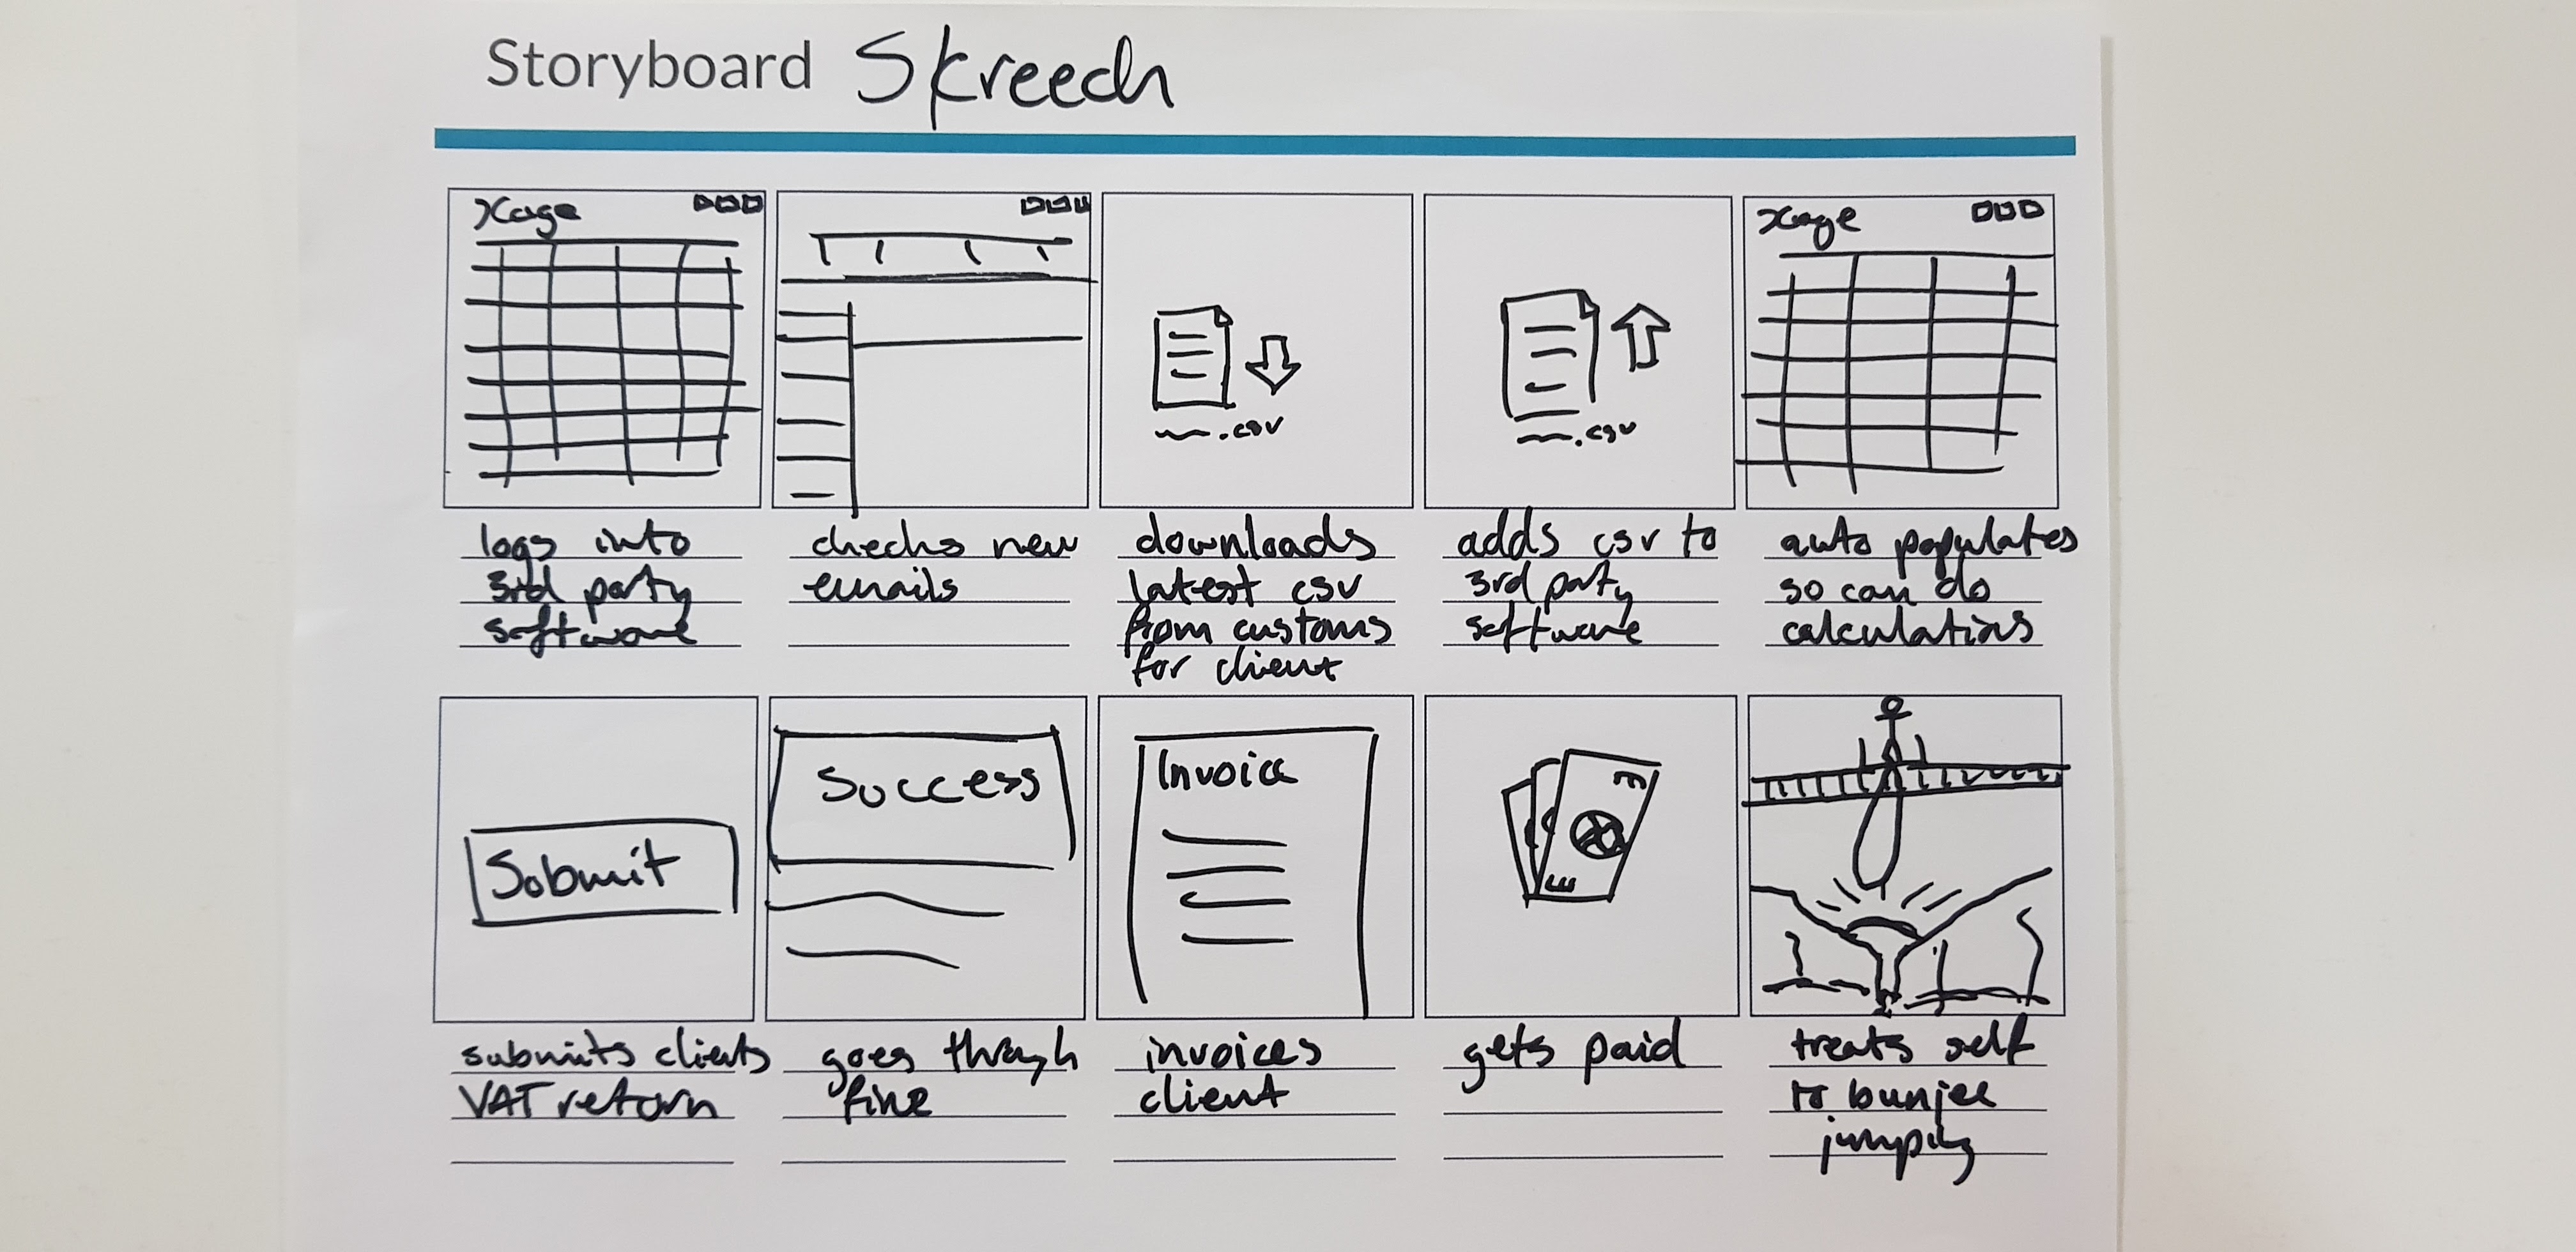 Storyboard Skreech
Xage
Xage
.csv
.csv
logs into
3rd party
software
checks new
emails
downloads
latest csv
from customs
for client
adds csv to
3rd party
software
auto populates
so can do
calculations
Submit
Success
Invoice
£
£
submits clients
VAT return
goes through
fine
invoices
client
gets paid
treats self
to bunjee
jumping